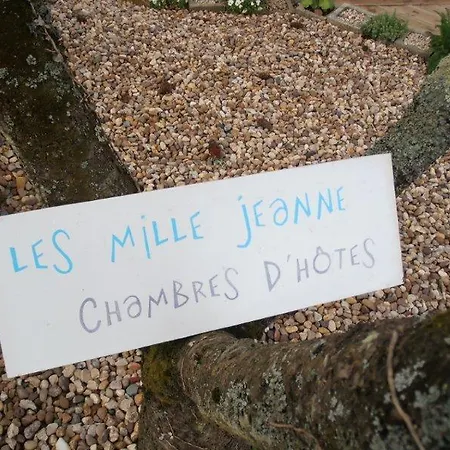 LES MILLE JEANNE
CHAMBRES D'HÔTES